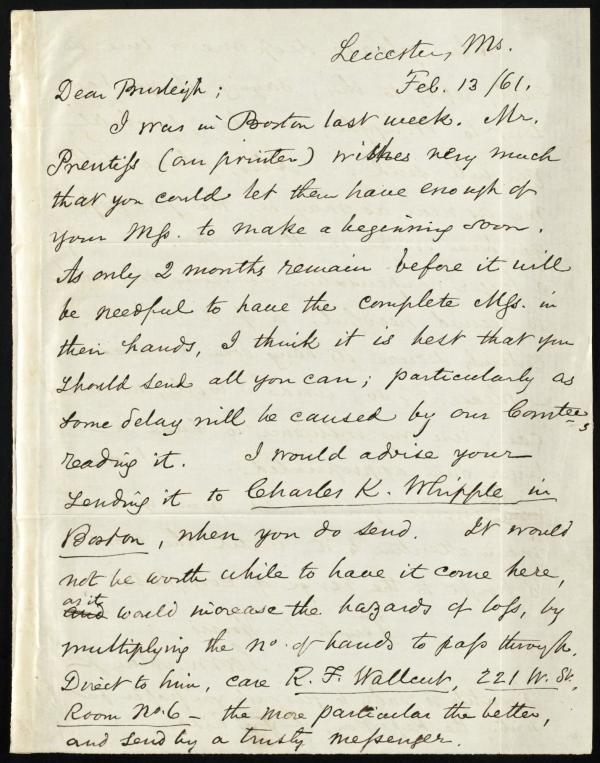 Leicester, Ms.
Feb. 13/61.
Dear Burleigh;
I was in Boston last week. Mr.
Prentiss (our printer) wishes very much
that you could let them have enough of
your Mss. to make a beginning soon.
As only 2 months remain before it will
be needful to have the complete Mss. in
their hands, I think it is best that you
should send all you can; particularly as
some delay will be caused by our Comtee's
reading it. I would advise your
sending it to Charles K. Whipple in
Boston, when you do send. It would
not be worth while to have it come here,
as it
and would increase the hazards of loss, by
multiplying the no. of hands to pass through.
Direct to him, care R. F. Wallcut, 221 W. St.
Room No. 6 – the more particular the better,
and send by a trusty messenger.